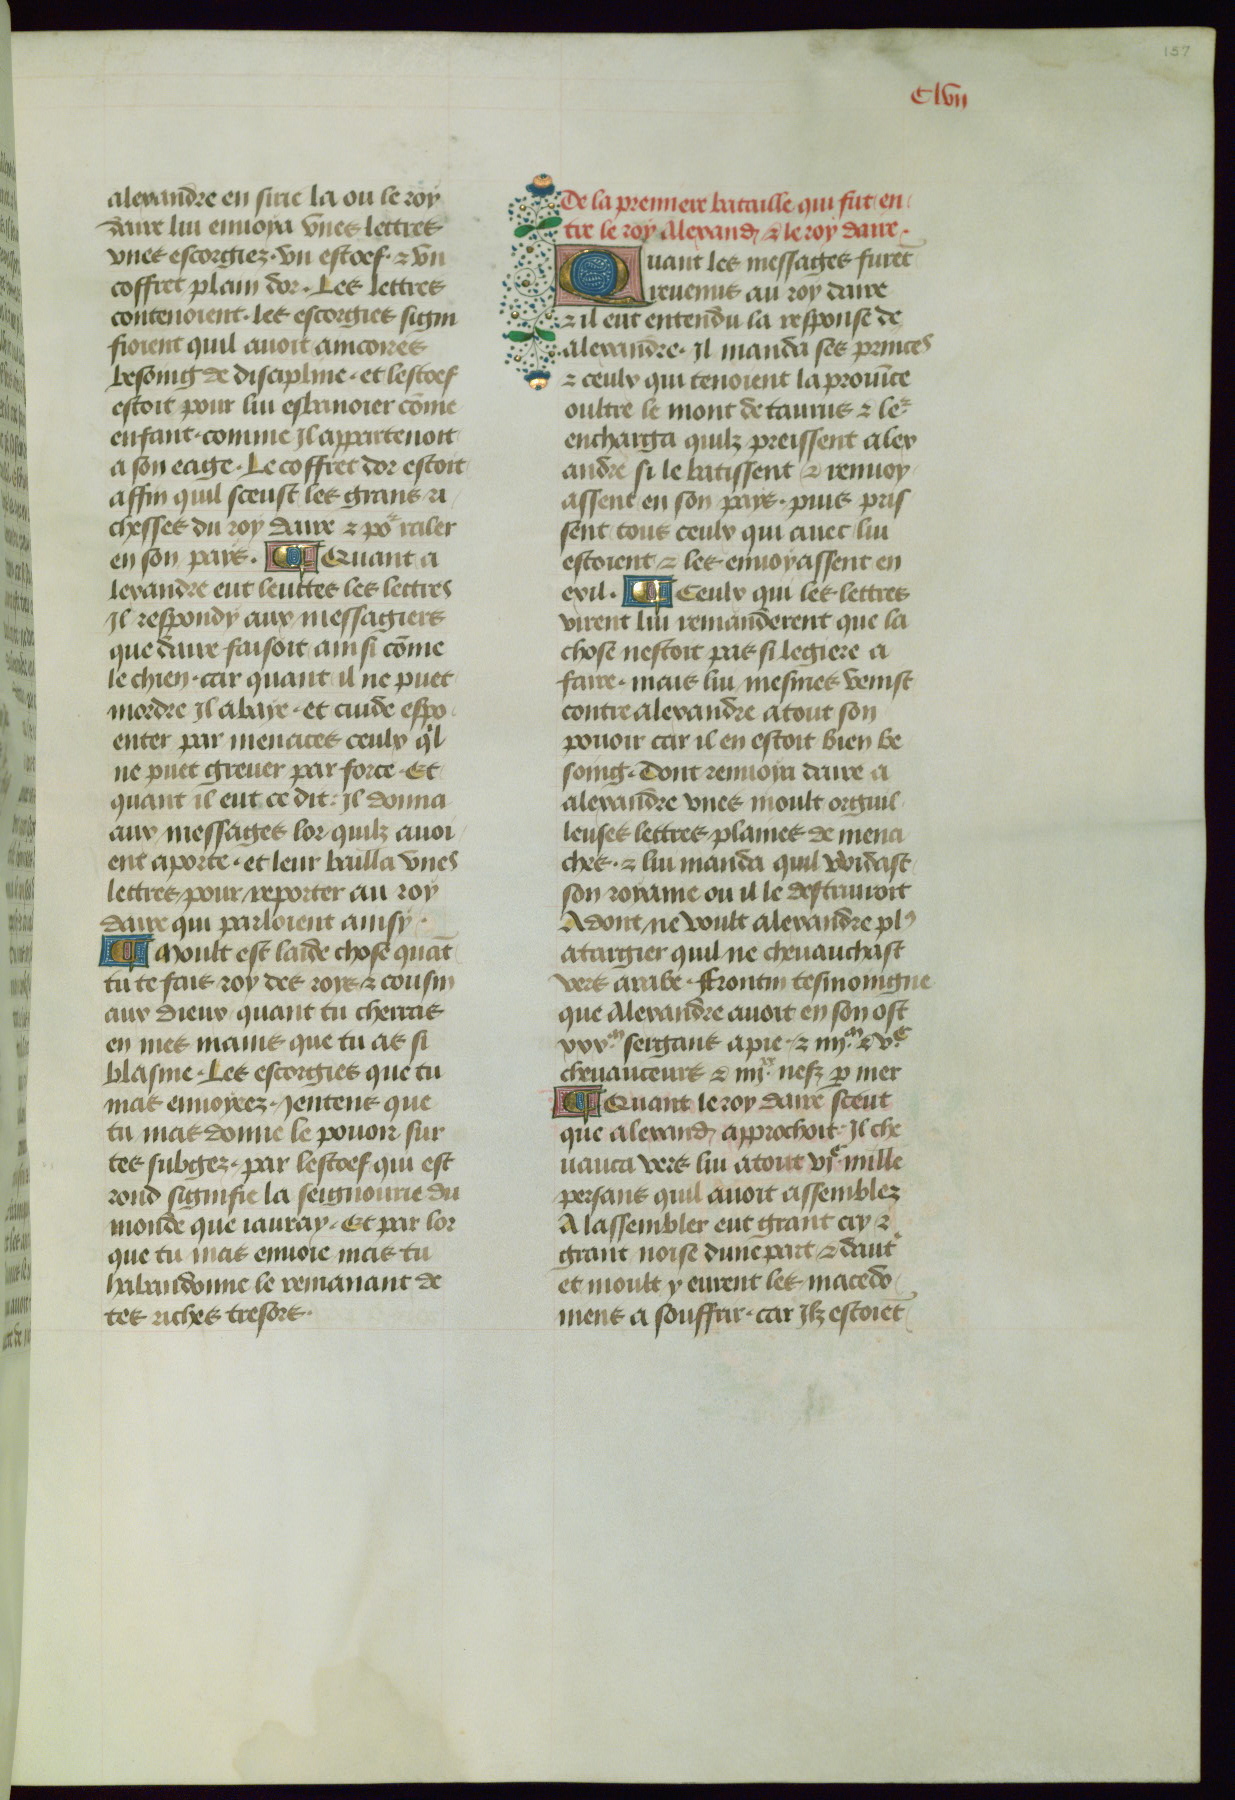 157
Clvii
alexandre en sirie la ou le roy
daire lui enuoya vnes lettres
vnes escorgiez · vn estoef · ⁊ vn
coffret plain dor · Les lettres
contenoient · les escorgies signi
fioient quil auoit aincores
besoing de discipline · et lestoef
estoit pour lui esbanoier cōme
enfant · comme Jl appartenoit
a son eage · Le coffret dor estoit
affin quil sceust les grans ri
chesses du roy daire ⁊ por raler
en son pays · ¶ Quant a
lexandre eut leuttes les lettres
Jl respondy aux messagiers
que daire faisoit ainsi cōme
le chien · car quant il ne puet
mordre Jl abaye · et cuide espo
enter par menaces ceulx q'l
ne puet greuer par force · Et
quant il eut ce dit : Jl donna
aux messages lor quilz auoi
ent aporte · et leur bailla vnes
lettres pour reporter au roy
daire qui parloient ainsy ·
¶ Moult est laide chose quāt
tu te fais roy des roys ⁊ cousin
aux dieux quant tu cherras
en mes mains que tu as si
blasme · Les escorgies que tu
mas enuoyeez · Jentens que
tu mas donne le pouoir sur
tes subgez · par lestoef qui est
rond signifie la seignourie du
monde que iauray · Et par lor
que tu mas enuoie mas tu
habandonne le remanant de
tes riches tresors ·
De la premiere bataille qui fut en
tre le roy Alexand ⁊ le roy daire ·
Quant les messages furēt
reuenus au roy daire
⁊ il eut entendu la response de
alexandre · Jl manda ses princes
⁊ ceulx qui tenoient la prouīce
oultre le mont de taurus ⁊ ler
encharga quilz preissent alex
andre si le batissent ⁊ renuoy
assent en son pays · puis pris
sent tous ceulx qui auec lui
estoient ⁊ les enuoyassent en
exil · ¶ Ceulx qui les lettres
virent lui remanderent que la
chose nestoit pas si legiere a
faire · mais lui mesmes venist
contre alexandre atout son
pouoir car il en estoit bien be
soing · Dont renuoya daire a
alexandre vnes moult orguil
leuses lettres plaines de mena
ches · ⁊ lui manda quil widast
son royame ou il le destruiroit
Adont ne voult alexandre pl9
atargier quil ne cheuauchast
vers arabe · Frontin tesmoingne
que Alexandre auoit en son ost
xxx.m sergans a pie · ⁊ iiij.m ⁊ v.c
cheuauceurs ⁊ iiij.xx nefz p mer
¶ Quant le roy daire sceut
que alexand approchoit · Jl che
uauca vers lui atout vi.c mille
persans quil auoit assemblez
A lassembler eut grant cry ⁊
grant noise dune part ⁊ daut'
et moult y eurent les macedo
niens a souffrir · car Jlz estoiēt